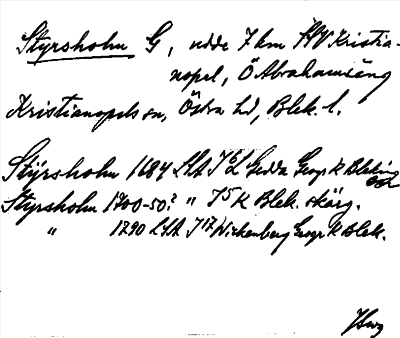 Styrsholm G, udde 7 km NV Kristia-
nopel, Ö Abrahamsäng
Kristianopels sn, Östra hd, Blek. l.
Styrsholm 1684 LSA Gedda Geogr K Bleking
Styrsholm 1700-50? " K Blek. skärg.
" 1790 LSA J17 Wickenberg Geogr K Blek.